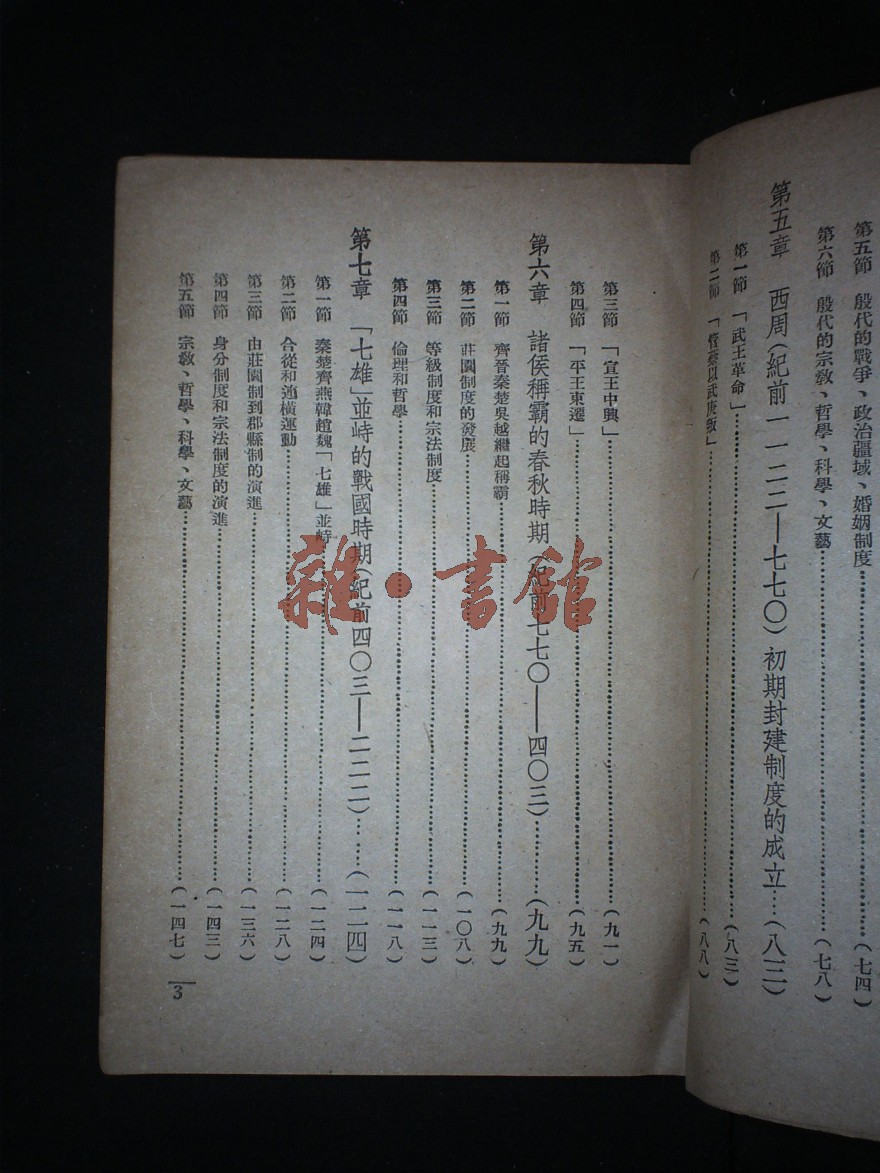 第五節　殷代的戰爭、政治疆域、婚姻制度……（七四）
第六節　殷代的宗教、哲學、科學、文藝……（七八）
第五章　西周（紀前一一二二—七七〇）初期封建制度的成立……（八三）
第一節　「武王革命」……（八三）
第二節　「管蔡以武庚叛」……（八八）
第三節　「宣王中興」……（九一）
第四節　「平王東遷」……（九五）
第六章　諸侯稱霸的春秋時期（紀前七七〇—四〇三）……（九九）
第一節　齊晉秦楚吳越繼起稱霸……（九九）
第二節　莊園制度的發展……（一〇八）
第三節　等級制度和宗法制度……（一一三）
第四節　倫理和哲學……（一一八）
第七章　「七雄」並峙的戰國時期（紀前四〇三—二二二）……（一二四）
第一節　秦楚齊燕韓趙魏「七雄」並峙……（一二四）
第二節　合從和連橫運動……（一二八）
第三節　由莊園制到郡縣制的演進……（一三六）
第四節　身分制度和宗法制度的演進……（一四三）
第五節　宗教、哲學、科學、文藝……（一四七）
3
雜·書館